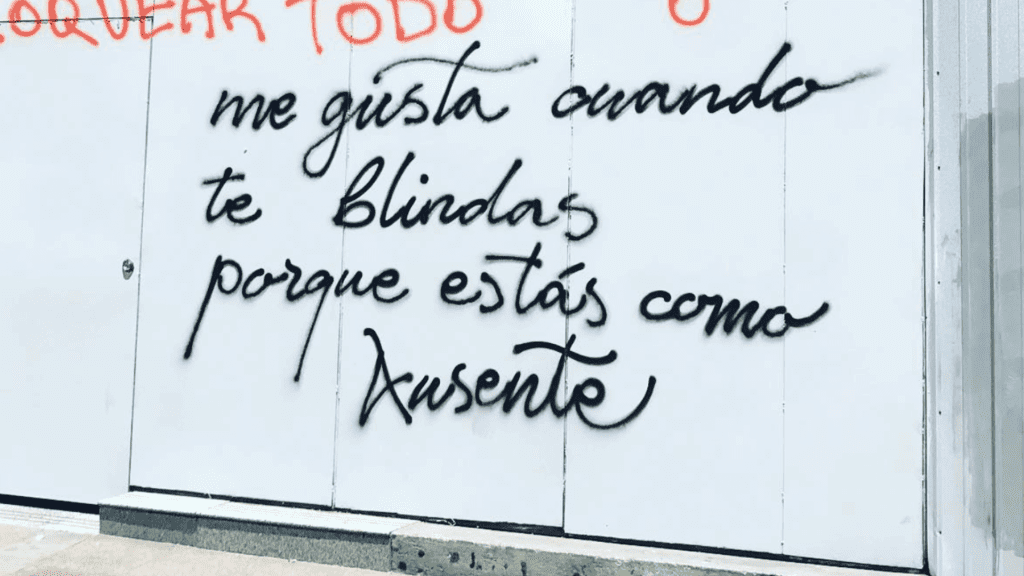 OQUEAR TODO
me gusta cuando
te blindas
porque estás como
Ausente